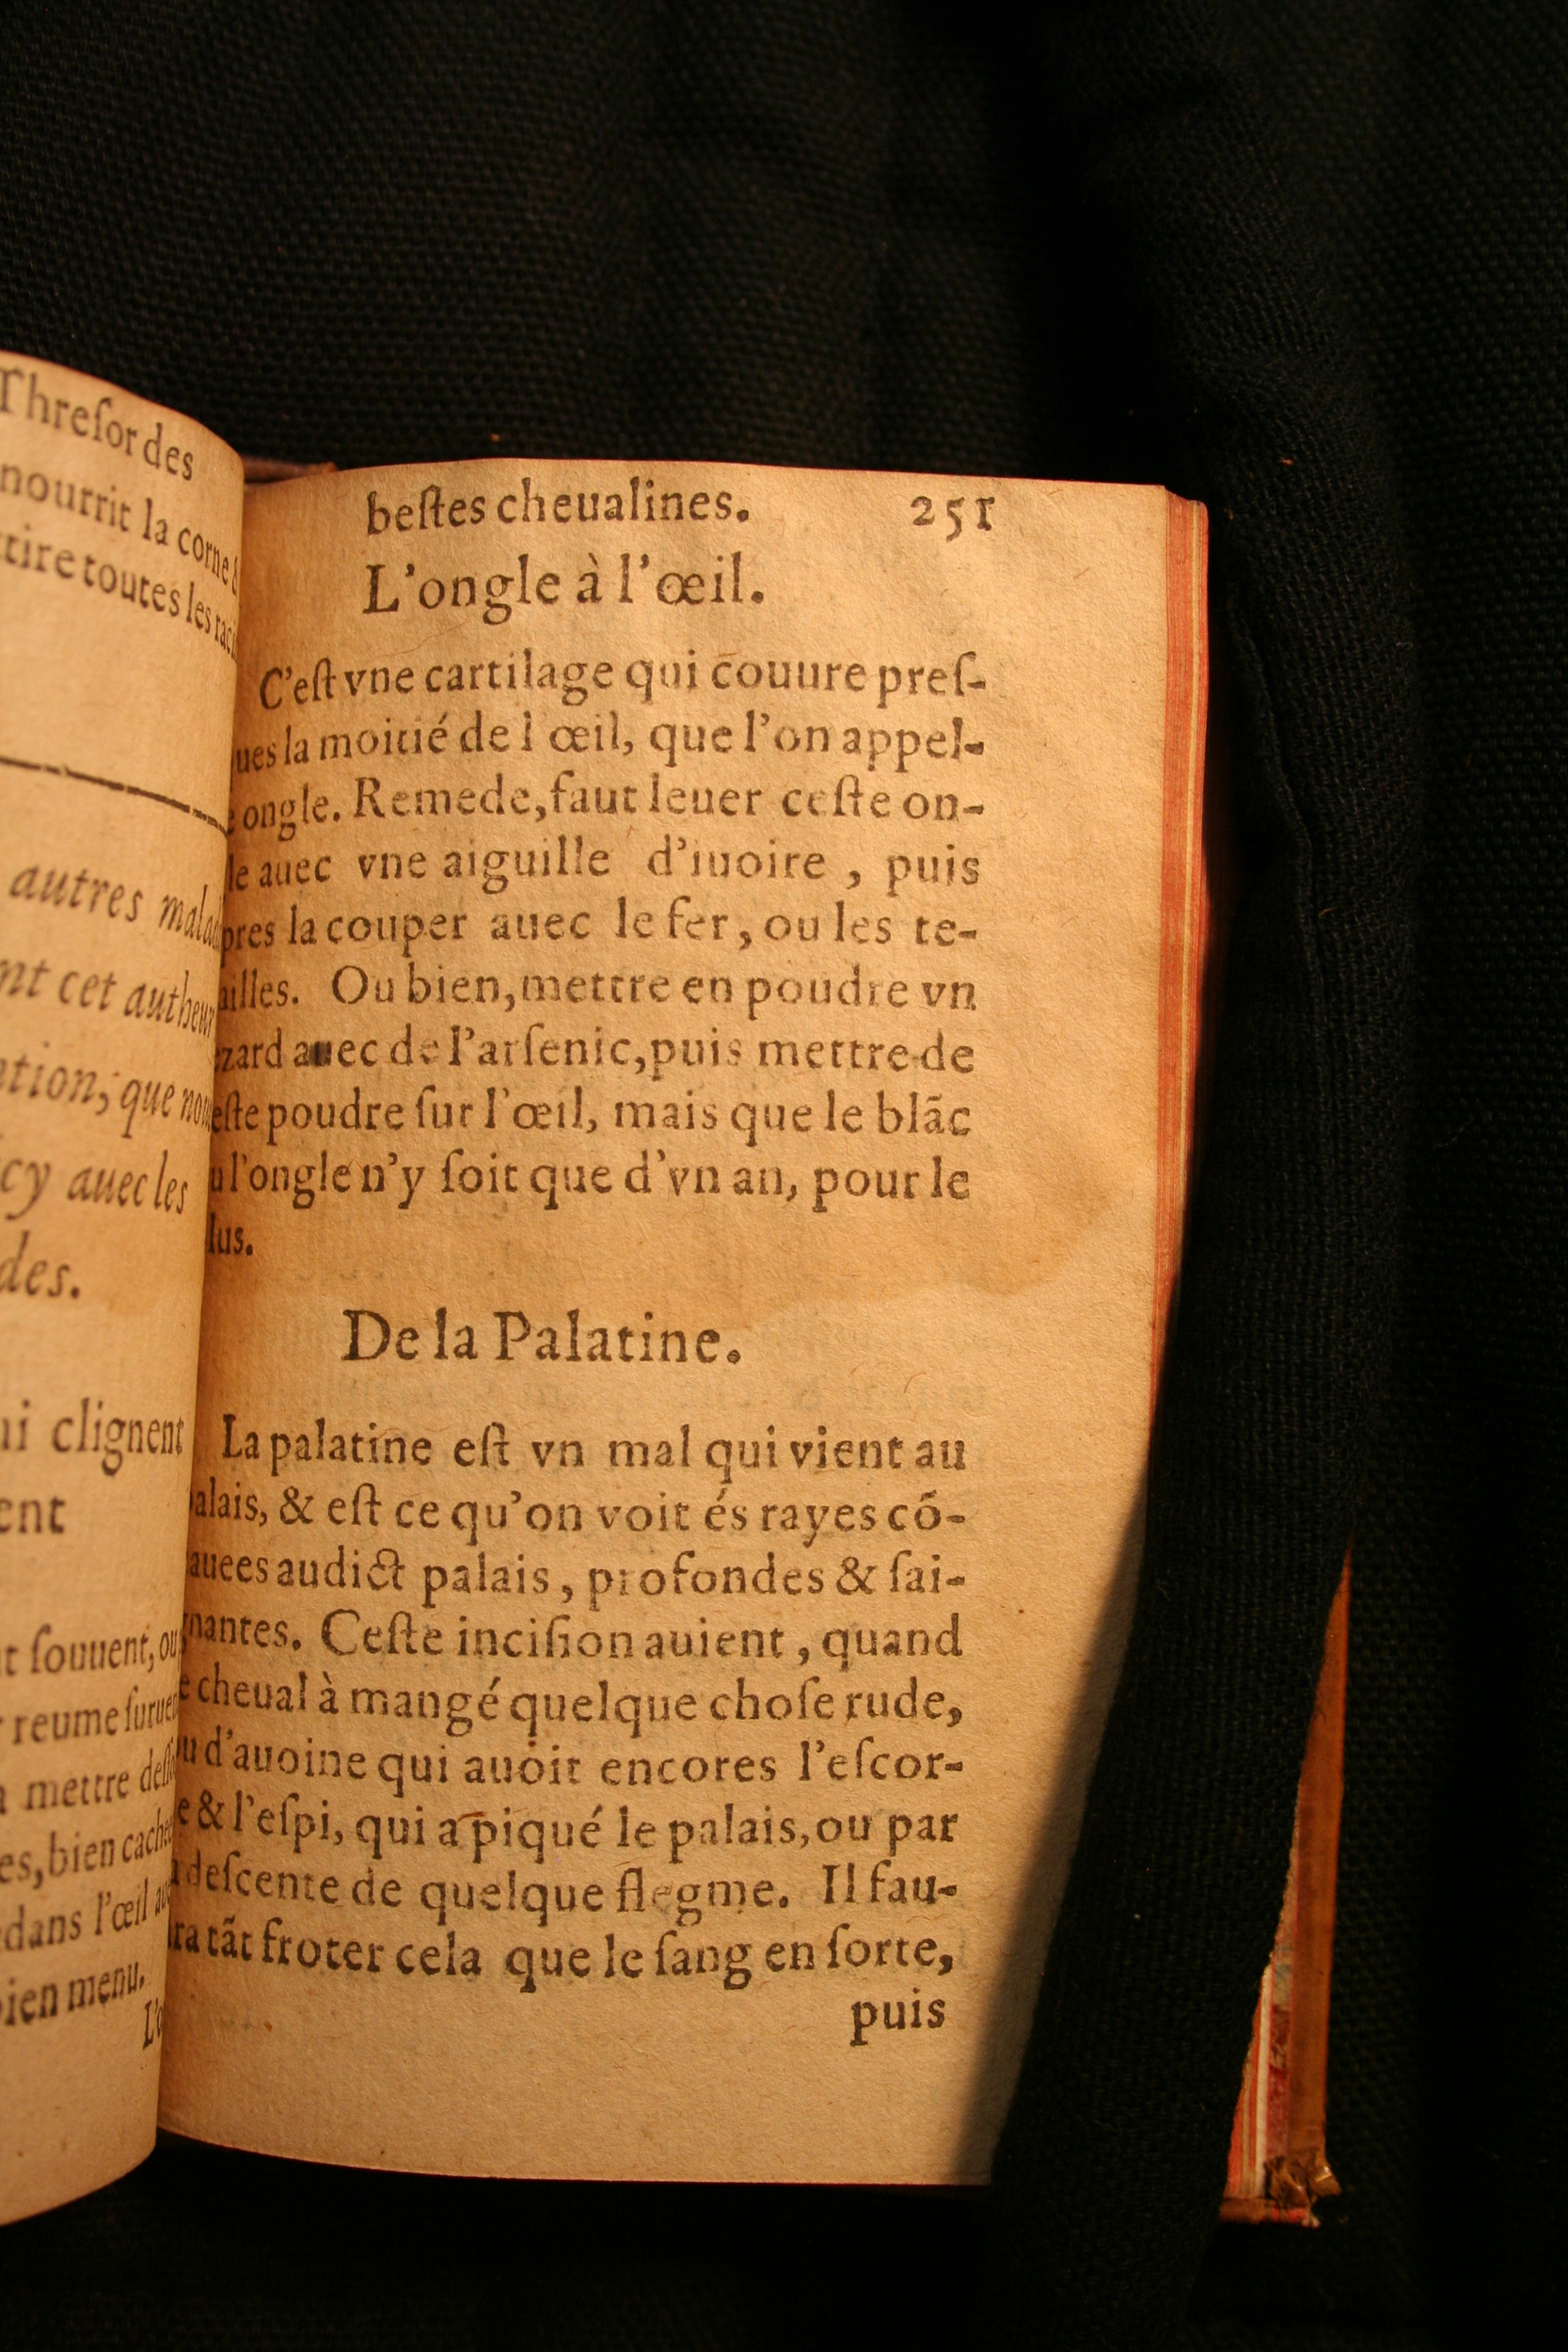 Threſor des
nourrit la corne &
toutes les
autres
cet autheur
que
cy auec les
des.
clignent
ſouuent, ou
reume
mettre
bien
dans l'œil
bien menu.
beſtes cheualines. 251
L'ongle à l'œil.
C'eſt vne cartilage qui couure preſ-
ues la moitié de l œil, que l'on appel-
e ongle. Remede, faut leuer ceſte on-
le auec vne aiguille d'iuoire, puis
pres la couper auec le fer, ou les te-
ailles. Ou bien, mettre en poudre vn
zard auec de l'arſenic, puis mettre de
eſte poudre ſur l'œil, mais que le blãc
u l'ongle n'y ſoit que d'vn an, pour le
lus.
De la Palatine.
La palatine eſt vn mal qui vient au
alais, & eſt ce qu'on voit és rayes cõ-
auees audict palais, profondes & ſai-
gnantes. Ceſte inciſion auient, quand
e cheual à mangé quelque choſe rude,
u d'auoine qui auoit encores l'eſcor-
e & l'eſpi, qui a piqué le palais, ou par
a deſcente de quelque flegme. Il fau-
ra tãt froter cela que le ſang en ſorte,
puis